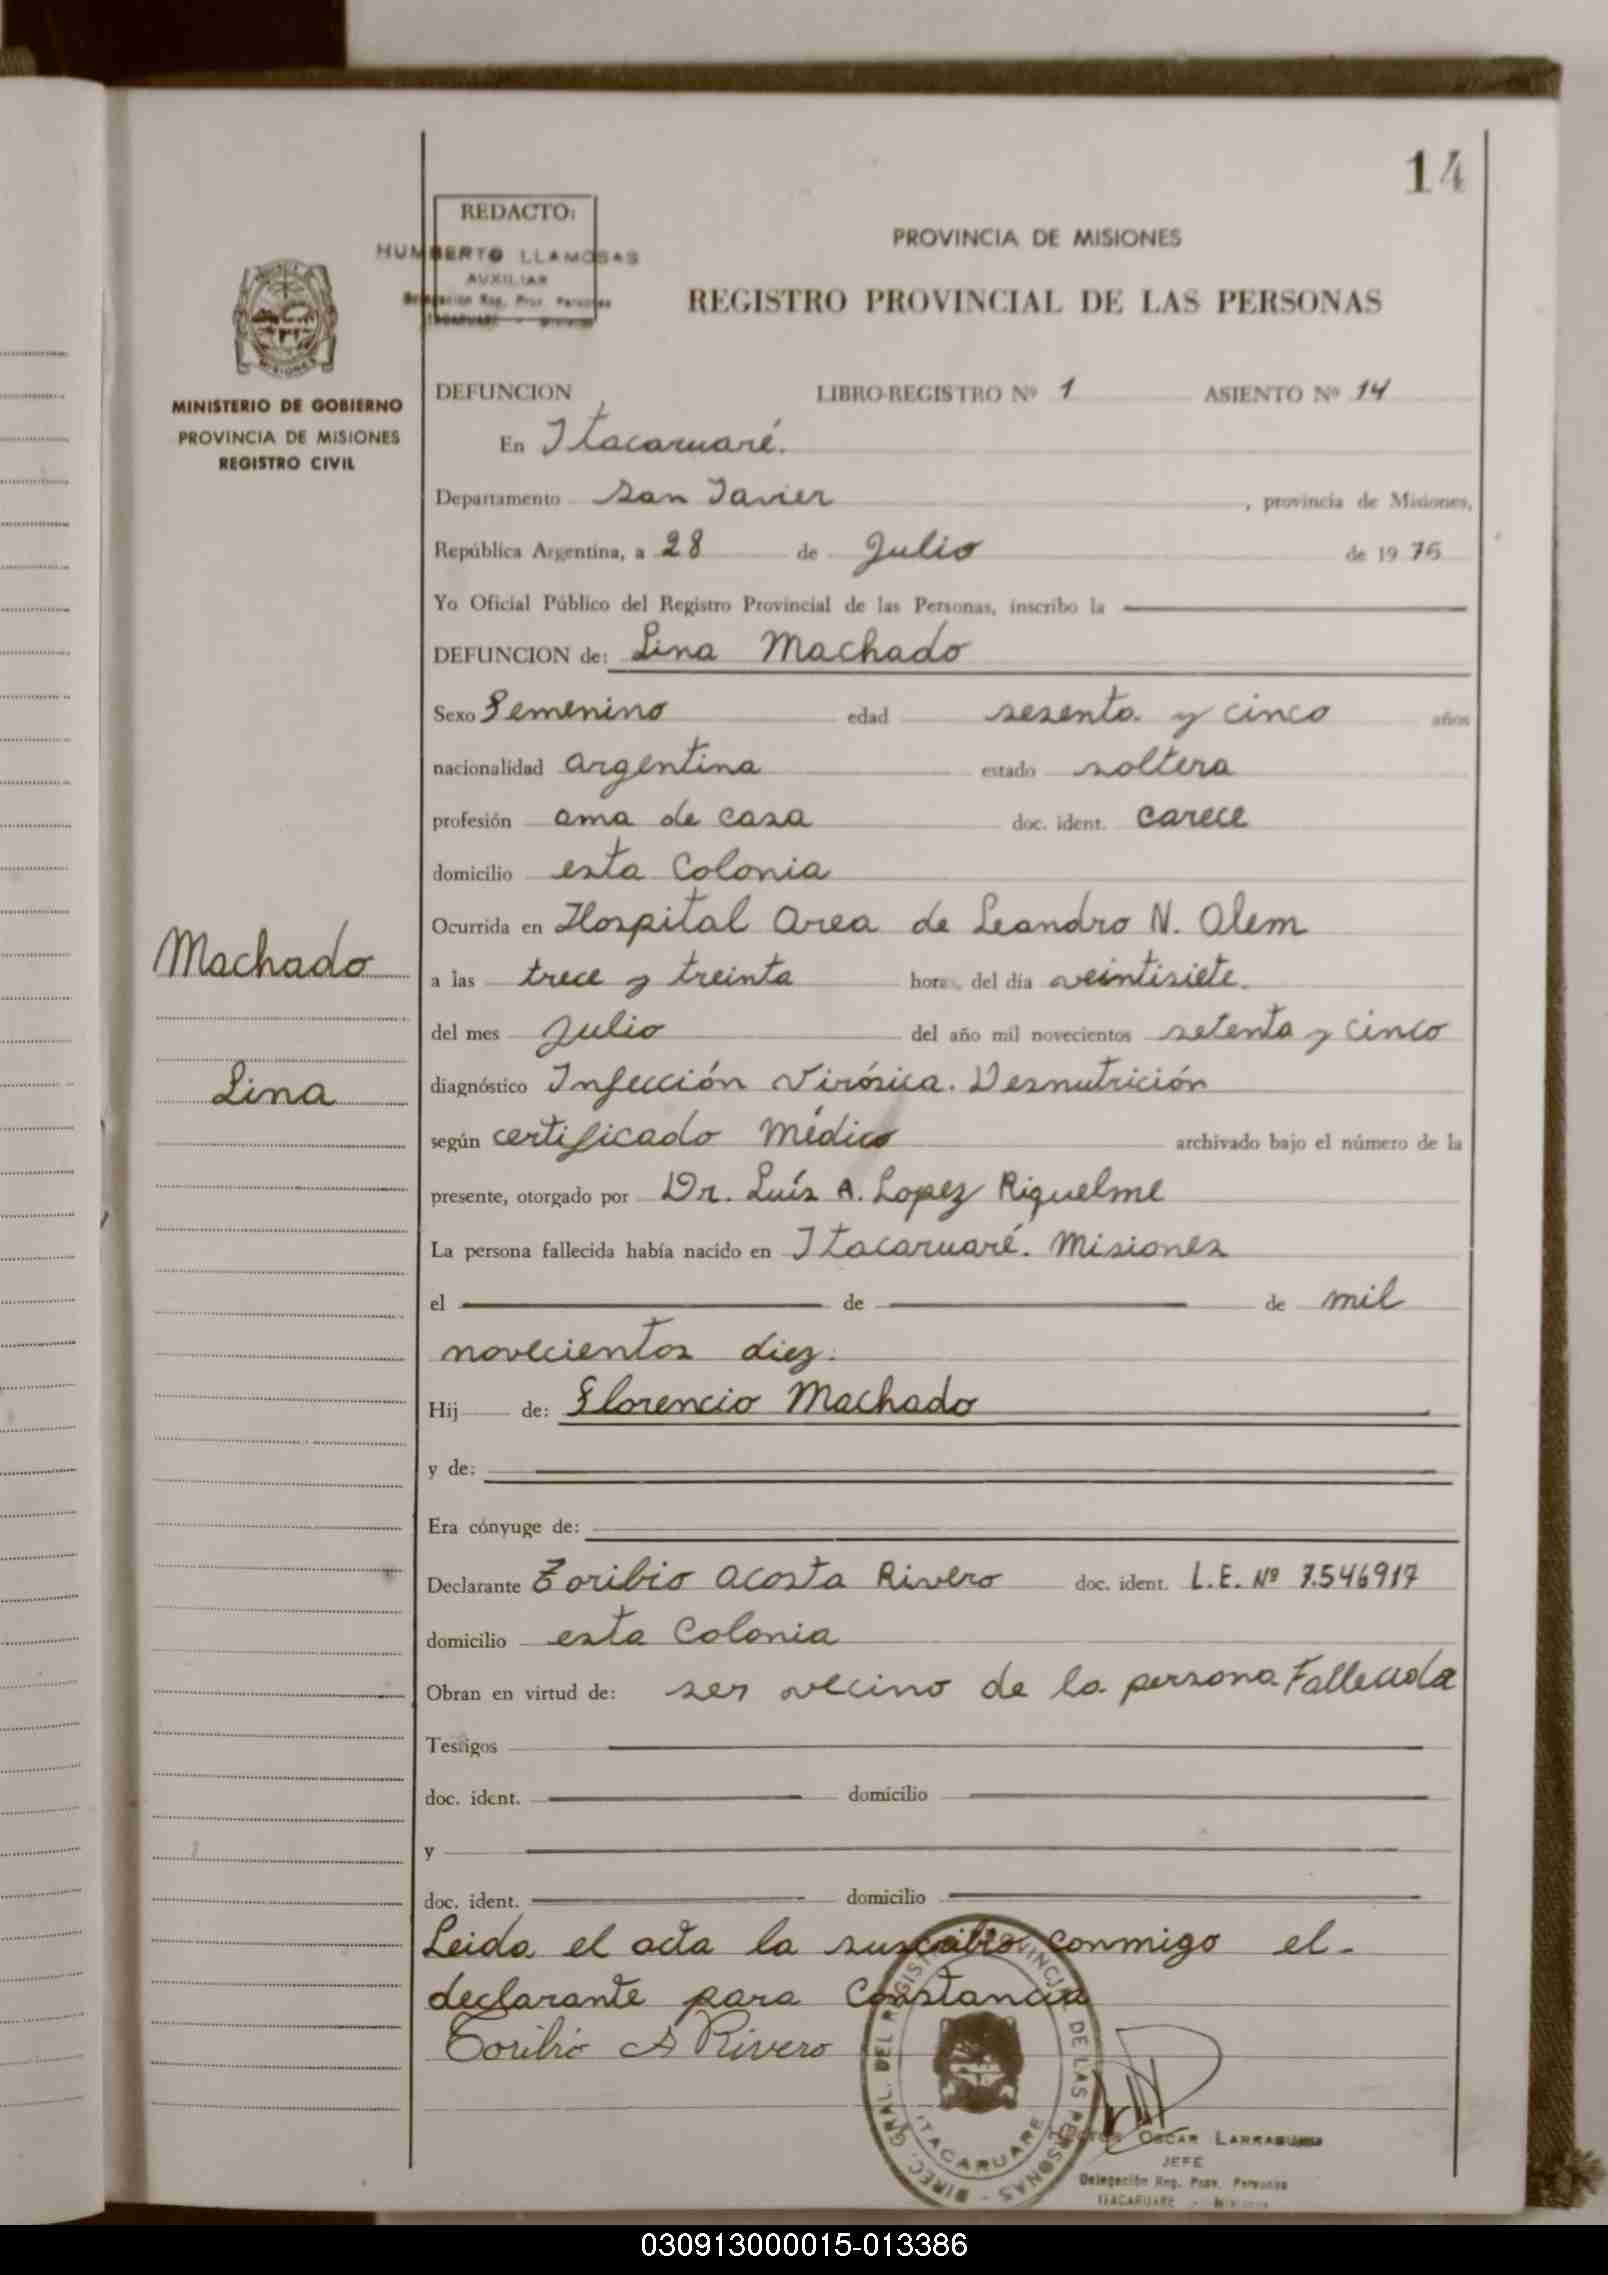 14
REDACTO:
HUMBERTO LLAMOSAS
AUXILIAR
Delegación Reg. Prov. Personas
ITACARUARE - Misiones
PROVINCIA DE MISIONES
REGISTRO PROVINCIAL DE LAS PERSONAS
MINISTERIO DE GOBIERNO
PROVINCIA DE MISIONES
REGISTRO CIVIL
DEFUNCION LIBRO-REGISTRO Nº 1 ASIENTO Nº 14
En Itacaruaré.
Departamento San Javier, provincia de Misiones,
República Argentina, a 28 de Julio de 1975
Yo Oficial Público del Registro Provincial de las Personas, inscribo la
DEFUNCION de: Lina Machado
Sexo Femenino edad sesenta y cinco años
nacionalidad argentina estado soltera
profesión ama de casa doc. ident. carece
domicilio esta Colonia
Ocurrida en Hospital Area de Leandro N. Alem
Machado
a las trece y treinta horas del día veintisiete.
del mes Julio del año mil novecientos setenta y cinco
Lina
diagnóstico Infección Virósica. Desnutrición
según certificado Médico archivado bajo el número de la
presente, otorgado por Dr. Luís A. Lopez Riquelme
La persona fallecida había nacido en Itacaruaré. Misiones
el de de mil
novecientos diez.
Hij de: Florencio Machado
y de:
Era cónyuge de:
Declarante Toribio Acosta Rivero doc. ident. L.E. Nº 7.546917
domicilio esta Colonia
Obran en virtud de: ser vecino de la persona Fallecida
Testigos
doc. ident. domicilio
y
doc. ident. domicilio
Leida el acta la suscribio conmigo el-
declarante para Constancia
Toribio A Rivero
DIREC. GRAL. DEL REGISTRO PROVINCIAL DE LAS PERSONAS -
ITACARUARE
OSCAR
JEFE
Delegación Reg. Prov. Personas
ITACARUARE - Misiones
030913000015-013386